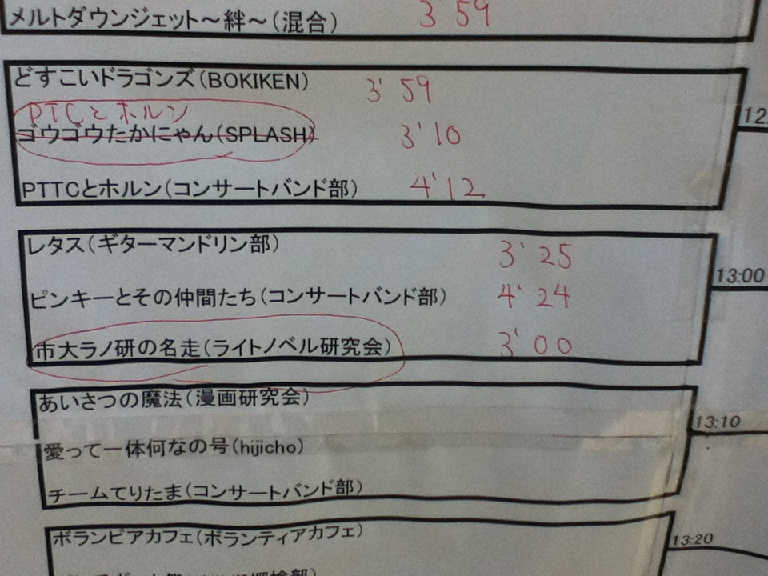 メルトダウンジェット～絆～(混合) 3'59
どすこいドラゴンズ(BOKIKEN) 3'59
PTCとホルン
ゴウゴウたかにゃん(SPLASH) 3'10
12
PTTCとホルン(コンサートバンド部) 4'12
レタス(ギターマンドリン部) 3'25
13:00
ピンキーとその仲間たち(コンサートバンド部) 4'24
市大ラノ研の名走(ライトノベル研究会) 3'00
あいさつの魔法(漫画研究会)
13:10
愛って一体何なの号(hijicho)
チームてりたま(コンサートバンド部)
ボランピアカフェ(ボランティアカフェ)
13:20